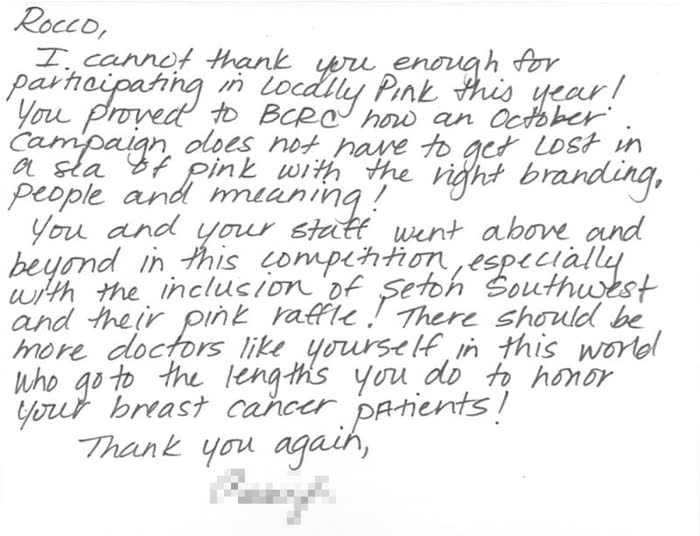 Rocco,
I cannot thank you enough for
participating in Locally Pink this year!
You proved to BCRC how an October
campaign does not have to get lost in
a sea of pink with the right branding,
people and meaning!
You and your staff went above and
beyond in this competition, especially
with the inclusion of Seton Southwest
and their pink raffle! There should be
more doctors like yourself in this world
who go to the lengths you do to honor
your breast cancer patients!
Thank you again,